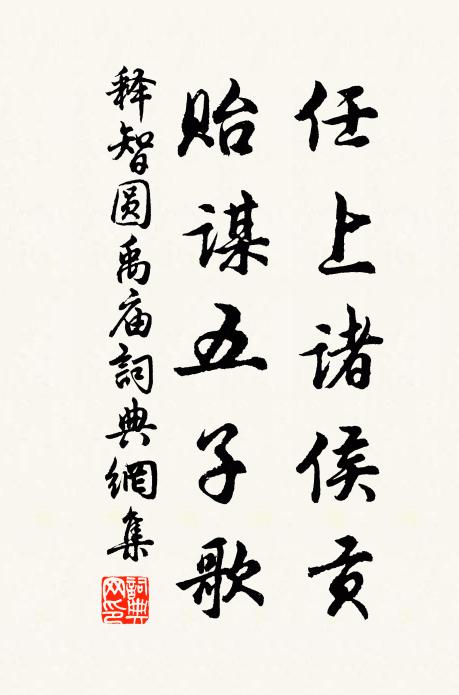 任上诸侯贡
贻谋五子歌
释智圆禹庙詞典網集
詞典网印